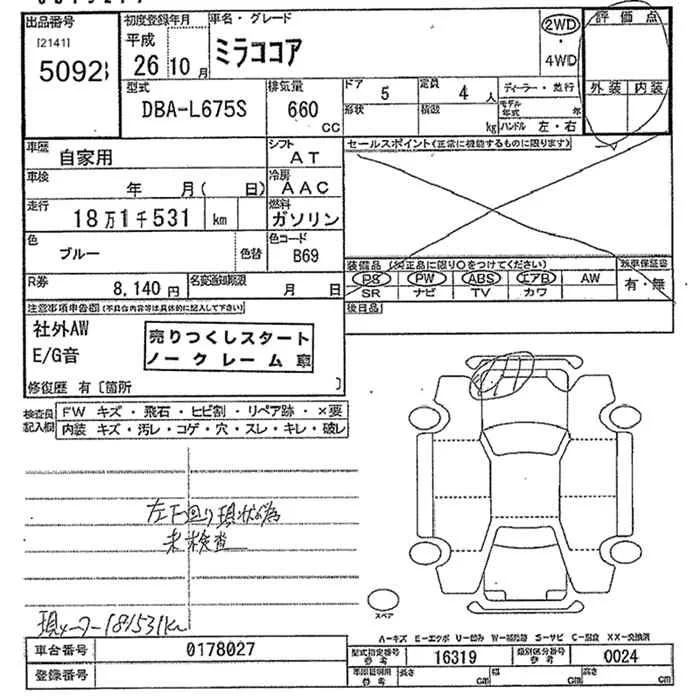 出品番号
[2141]
5092
初度登録年月
平成
26 10月
車名・グレード
ミラココア
2WD
・
4WD
評価点
外装 内装
型式
DBA-L675S
排気量
660
CC
ドア 5
形状
定員 4 人
積載 kg
ディーラー・並行
モデル年式 年
ハンドル 左・右
車歴
自家用
シフト
AT
セールスポイント(正常に機能するものに限ります)
車検
年 月( 日)
冷房
AAC
走行
18万1千531 km
燃料
ガソリン
色
ブルー
色替
色コード
B69
装備品 (純正品に限り○をつけてください)
PS PW ABS エアB AW
SR ナビ TV カワ
新車保証書
有・無
R券
8,140円
名変通知期限
月 日
後日品
注意事項申告欄(不具合内容等は具体的に記入して下さい)
社外AW
E/G音
売りつくしスタート
ノークレーム車
修復歴 有〔箇所 〕
検査員
記入欄
FW キズ・飛石・ヒビ割・リペア跡・×要
内装 キズ・汚レ・コゲ・穴・スレ・キレ・破レ
左下回り現状為
未検査
現メーター181531Km
スペア
A-キズ E-エクボ U-凹み W-補修跡 S-サビ C-腐食 XX-交換済
車台番号
0178027
登録番号
型式指定番号
参考
16319
類別区分番号
参考
0024
車庫証明用
参考
長さ cm
幅 cm
高さ cm